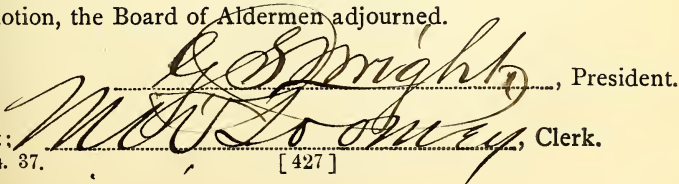 otion, the Board of Aldermen adjourned.
Wright, President.
Toomey, Clerk.
. 37. [427]